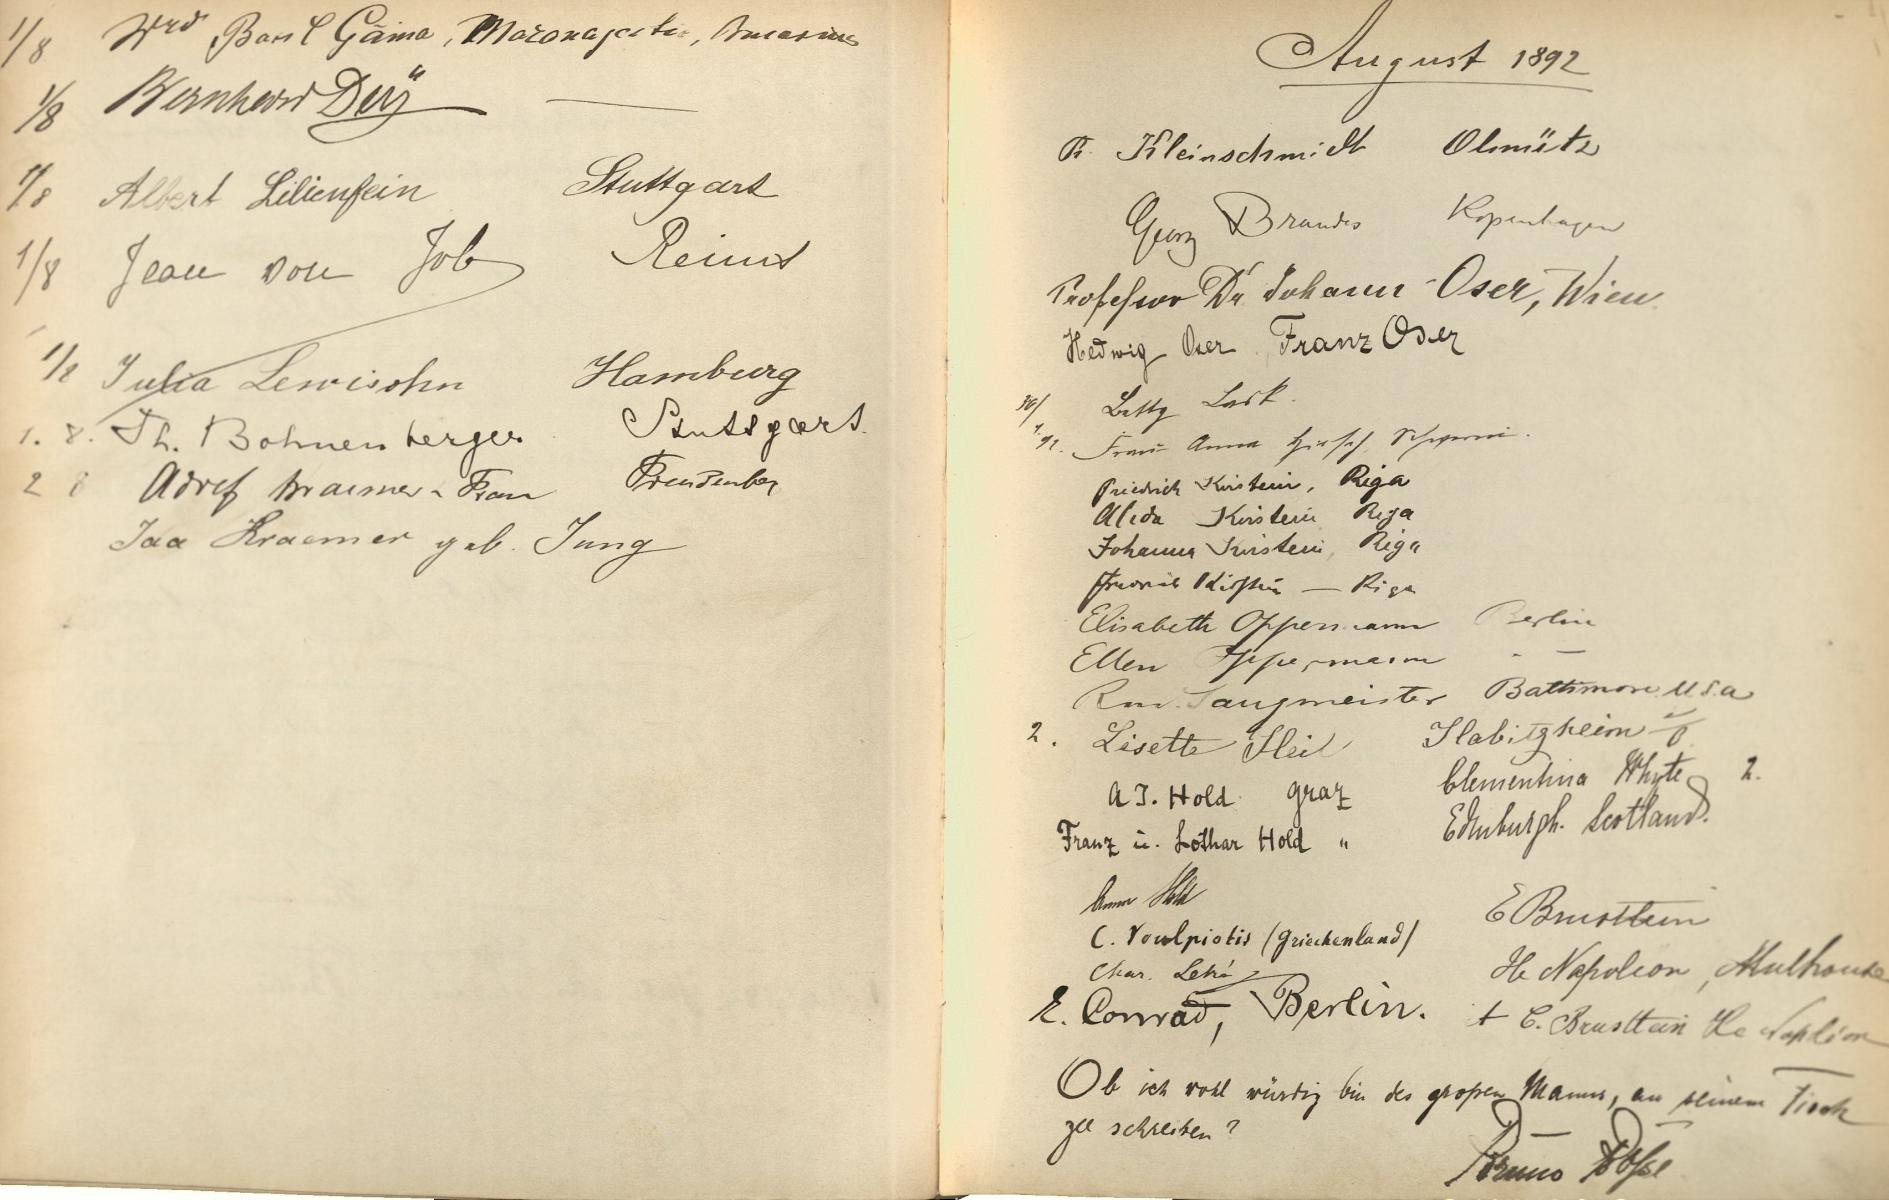 1/8 Basil Gâma,
1/8 Bernhard
1/8 Albert Lilienfein Stuttgart
1/8 Jean von Job Reims
1/8 Julia Lewisohn Hamburg
1. 8. Th. Bohnenberger Stuttgart.
2 8 Adolf Kraemer u. Frau Freudenberg
Ida Kraemer geb. Jung
August 1892
R. Kleinschmidt Olmütz
Georg Brandes Kopenhagen
Professor Dr. Johann Oser, Wien
Hedwig Oser. Franz Oser
Betty Lask.
Frau Anna Hirsch
Friedrich Kirstein, Riga
Alida Kirstein Riga
Johanna Kirstein, Riga
Kirstein — Riga
Elisabeth Oppermann Berlin
Ellen Oppermann " —
Langmeister Baltimore U.S.a
2. Lisette Heil Habitzheim
A J. Hold Graz
Franz u. Lothar Hold "
Clementina Whyte 2.
Edinburgh. Scotland.
Anna Hold
C. Voulpiotis (Griechenland)
Char.
E. Conrad, Berlin.
E Brustlein
He Napoleon, Mulhouse
+ C. Brustlein He Napoléon
Ob ich wohl würdig bin des großen Manns, an seinem Tisch
zu schreiben?
Bruno